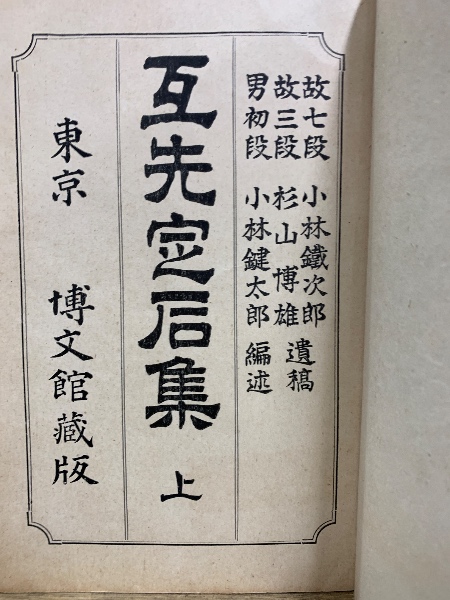 故七段 小林鐵次郎 遺稿
故三段 杉山博雄
男初段 小林鍵太郎 編述
互先定石集 上
東京 博文館藏版